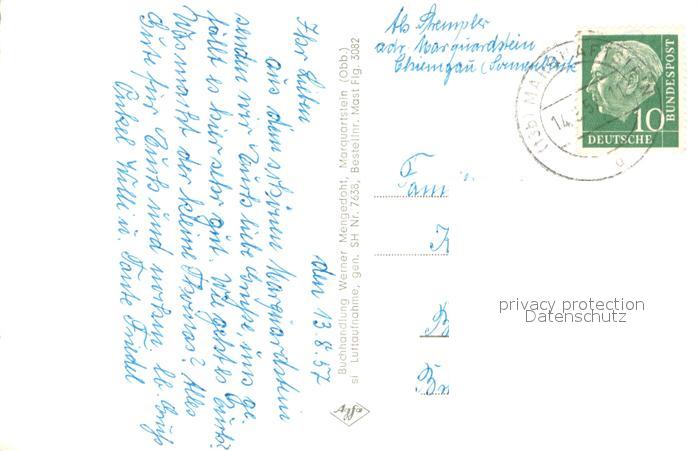 den 13.8.57
Ihr Lieben
aus dem schönen Marquardstein
senden wir Euch liebe Grüße, uns ge-
fällt es hier sehr gut. Wie geht es Euch?
Was macht der kleine Thomas? Alles
Gute für Euch und nochm. lb. Grüße
Onkel Willi u. Tante Friedel
Buchhandlung Werner Mengedoht, Marquartstein (Obb.)
si Luftaufnahme, gen. SH Nr. 7638, Bestellnr. Mast Flg. 3082
Abs Stempler
adr. Marquardstein
Chiemgau (Sonneneck
Fam
B
Br
DEUTSCHE
BUNDESPOST
10
(13b) MARQUART
14.
privacy protection
Datenschutz